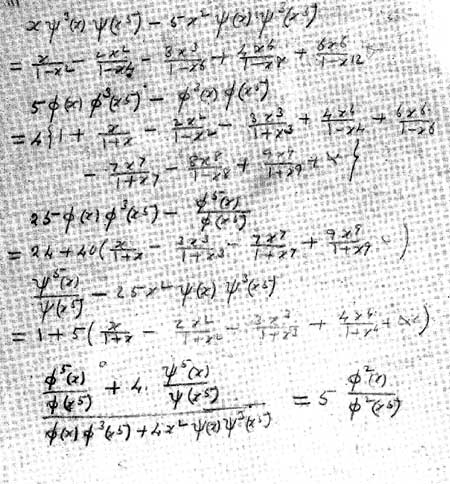 xψ³(x)ψ(x⁵) − 5x²ψ(x)ψ³(x⁵)
= x/(1−x²) − 2x²/(1−x⁴) − 3x³/(1−x⁶) + 4x⁴/(1−x⁸) + 6x⁶/(1−x¹²)
5φ(x)φ³(x⁵) − φ³(x)φ(x⁵)
= 4{1 + x/(1+x) − 2x²/(1−x²) − 3x³/(1+x³) + 4x⁴/(1−x⁴) + 6x⁶/(1−x⁶)
− 7x⁷/(1+x⁷) − 8x⁸/(1−x⁸) + 9x⁹/(1+x⁹) + &}
25φ(x)φ³(x⁵) − φ⁵(x)/φ(x⁵)
= 24 + 40(x/(1+x) − 3x³/(1+x³) − 7x⁷/(1+x⁷) + 9x⁹/(1+x⁹) &)
ψ⁵(x)/ψ(x⁵) − 25x²ψ(x)ψ³(x⁵)
= 1 + 5(x/(1+x) − 2x²/(1+x²) − 3x³/(1+x³) + 4x⁴/(1+x⁴) + &)
(φ⁵(x)/φ(x⁵) + 4·ψ⁵(x)/ψ(x⁵)) / (φ(x)φ³(x⁵) + 4x²ψ(x)ψ³(x⁵)) = 5 φ²(x)/φ²(x⁵)